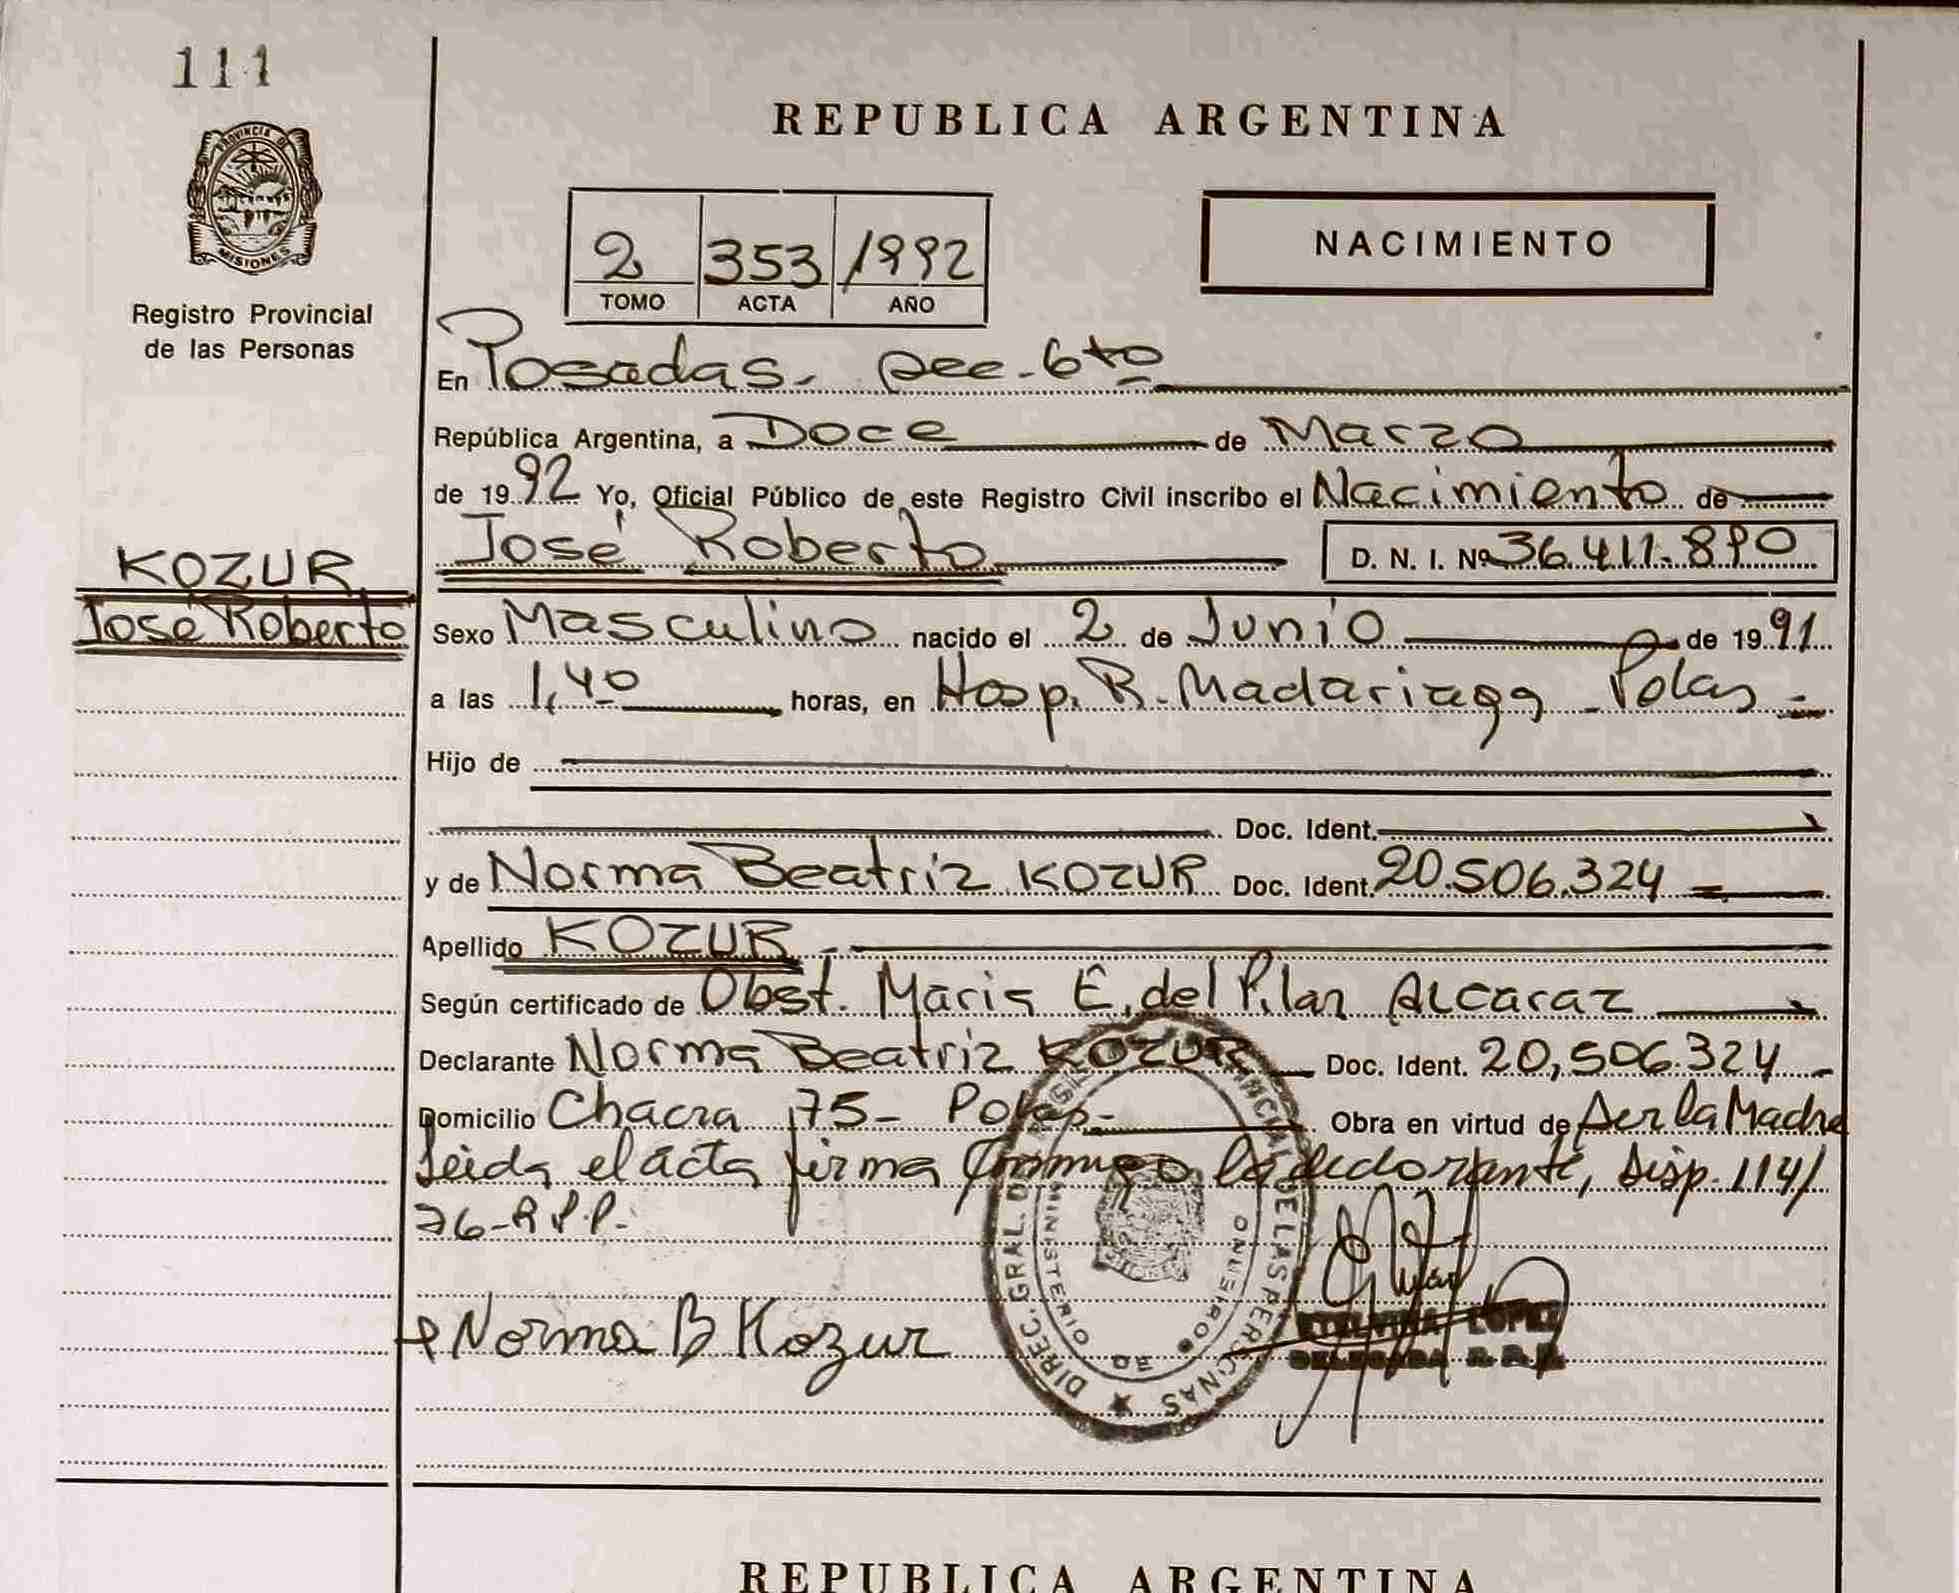 111
REPUBLICA ARGENTINA
PROVINCIA DE
MISIONES
Registro Provincial
de las Personas
2 353 1992
TOMO ACTA AÑO
NACIMIENTO
En Posadas - sec - 6to
República Argentina, a Doce de Marzo
de 1992 Yo, Oficial Público de este Registro Civil inscribo el Nacimiento de
José Roberto D. N. I. Nº 36.411.890
KOZUR
José Roberto
Sexo Masculino nacido el 2 de Junio de 1991
a las 1,40 horas, en Hosp. R. Madariaga - Pdas -
Hijo de
Doc. Ident.
y de Norma Beatriz KOZUR Doc. Ident. 20.506.324
Apellido KOZUR
Según certificado de Obst. Maria E. del Pilar Alcaraz
Declarante Norma Beatriz KOZUR Doc. Ident. 20,506.324
Domicilio Chacra 75 - Pdas - Obra en virtud de ser la Madre
Leida el acta firma conmigo la declarante, Disp. 114/
76 - R.P.P.
Norma B Kozur
DIREC. GRAL. DEL REGISTRO PROVINCIAL DE LAS PERSONAS
MINISTERIO DE GOBIERNO
LOPEZ
DELEGADA R.P.P.
REPUBLICA ARGENTINA